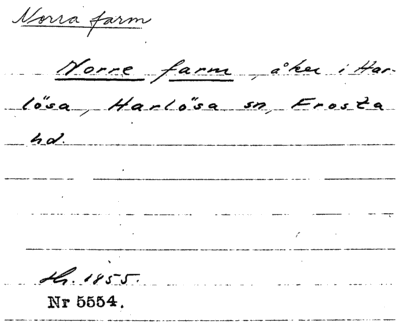 Norra farm
Norre farm, åker i Har-
lösa, Harlösa sn, Frosta
hd.
Hr. 1855.
Nr 5554.